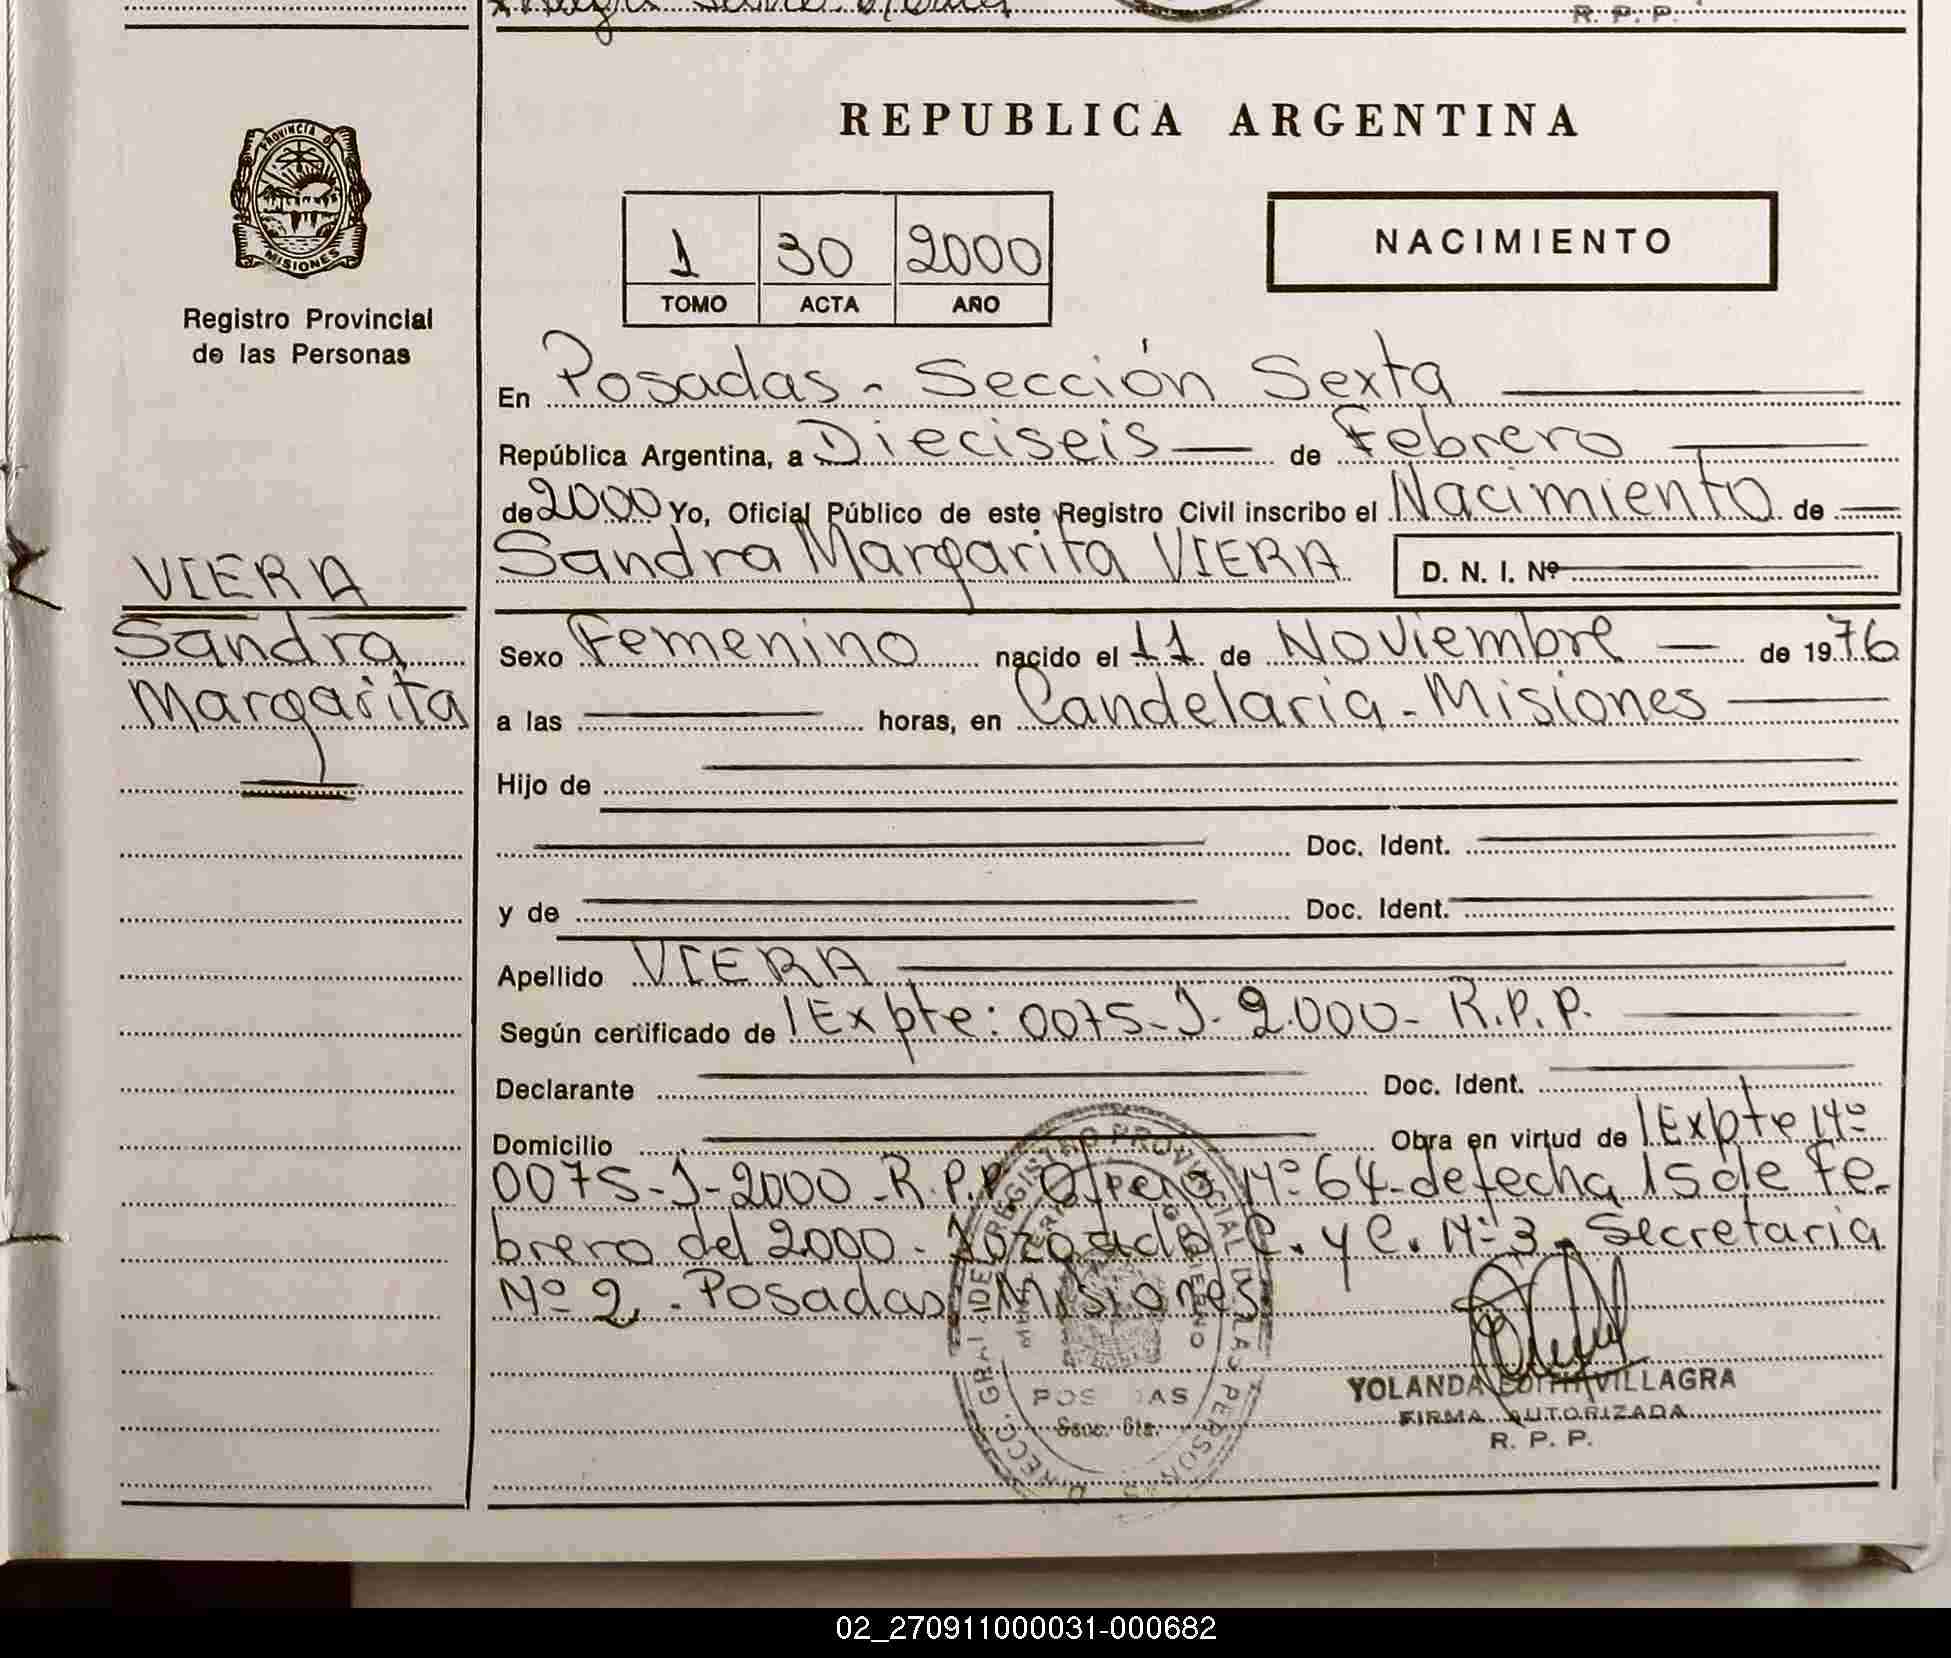 R. P. P.
REPUBLICA ARGENTINA
PROVINCIA D
MISIONES
Registro Provincial
de las Personas
1 30 2000
TOMO ACTA AÑO
NACIMIENTO
En Posadas - Sección Sexta
República Argentina, a Dieciseis de Febrero
de 2000 Yo, Oficial Público de este Registro Civil inscribo el Nacimiento de
Sandra Margarita VIERA D. N. I. Nº
VIERA
Sandra
Margarita
Sexo Femenino nacido el 11 de Noviembre de 1976
a las horas, en Candelaria - Misiones
Hijo de
Doc. Ident.
y de Doc. Ident.
Apellido VIERA
Según certificado de Expte: 0075-J-2.000- R.P.P.
Declarante Doc. Ident.
Domicilio Obra en virtud de Expte Nº
0075-J-2000-R.P.P. Oficio Nº 64 de fecha 15 de Fe-
brero del 2000. Juzgado C. y C. Nº 3 - Secretaria
Nº 2 - Posadas, Misiones
REGISTRO PROVINCIAL DE LAS PERSONAS
POSADAS
Secc. 6ta.
YOLANDA EDITH VILLAGRA
FIRMA AUTORIZADA
R. P. P.
02_270911000031-000682